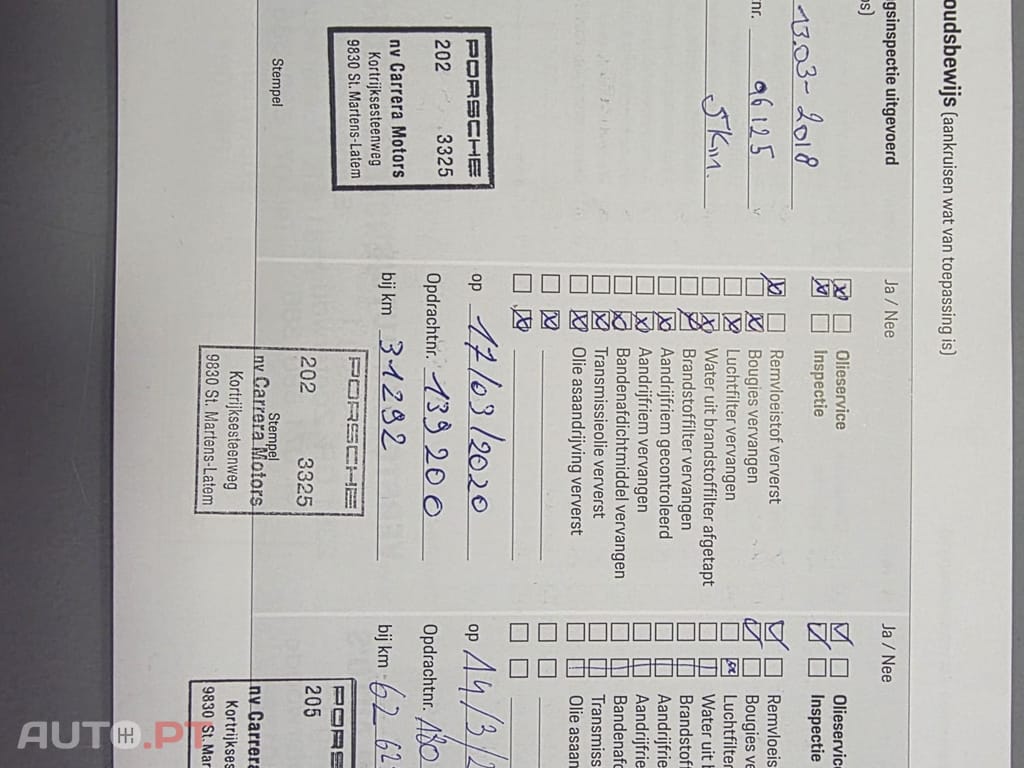 oudsbewijs (aankruisen wat van toepassing is)
gsinspectie uitgevoerd
s)
13.03-2018
nr. 96125
5 Km.
PORSCHE
202 3325
nv Carrera Motors
Kortrijksesteenweg
9830 St. Martens-Latem
Stempel
Ja / Nee
Olieservice
Inspectie
Remvloeistof ververst
Bougies vervangen
Luchtfilter vervangen
Water uit brandstoffilter afgetapt
Brandstoffilter vervangen
Aandrijfriem gecontroleerd
Aandrijfriem vervangen
Bandenafdichtmiddel vervangen
Transmissieolie ververst
Olie asaandrijving ververst
op 17/03/2020
Opdrachtnr. 139200
bij km 31292
PORSCHE
202 3325
Stempel
nv Carrera Motors
Kortrijksesteenweg
9830 St. Martens-Latem
Ja / Nee
Olieservic
Inspectie
Remvloeis
Bougies ve
Luchtfilter
Water uit b
Brandstof
Aandrijfrie
Aandrijfrie
Bandenafd
Transmiss
Olie asaan
op 14/3/2
Opdrachtnr. 180
bij km 62 62
PORS
205
nv Carre
Kortrijkses
9830 St. Mar
AUTO.PT